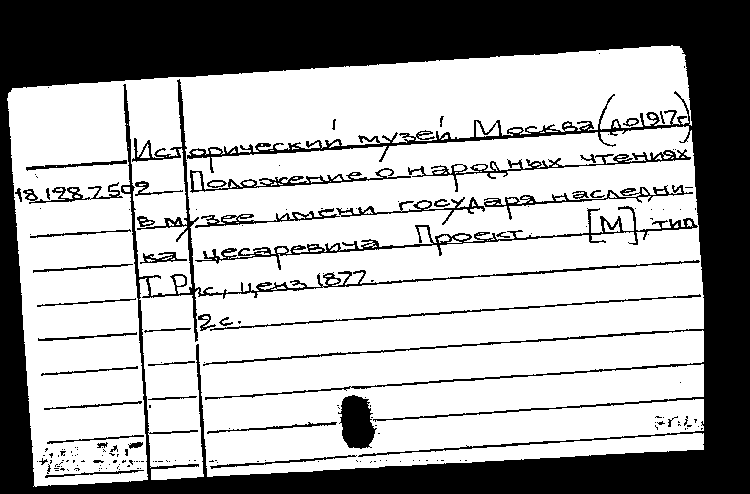 Исторический музей. Москва (до 1917г.)
18.198.7.502 Положение о народных чтениях
в музее имени государя наследни-
ка цесаревича. Проект. [М], тип.
Т. Рис, ценз 1877.
2 с.